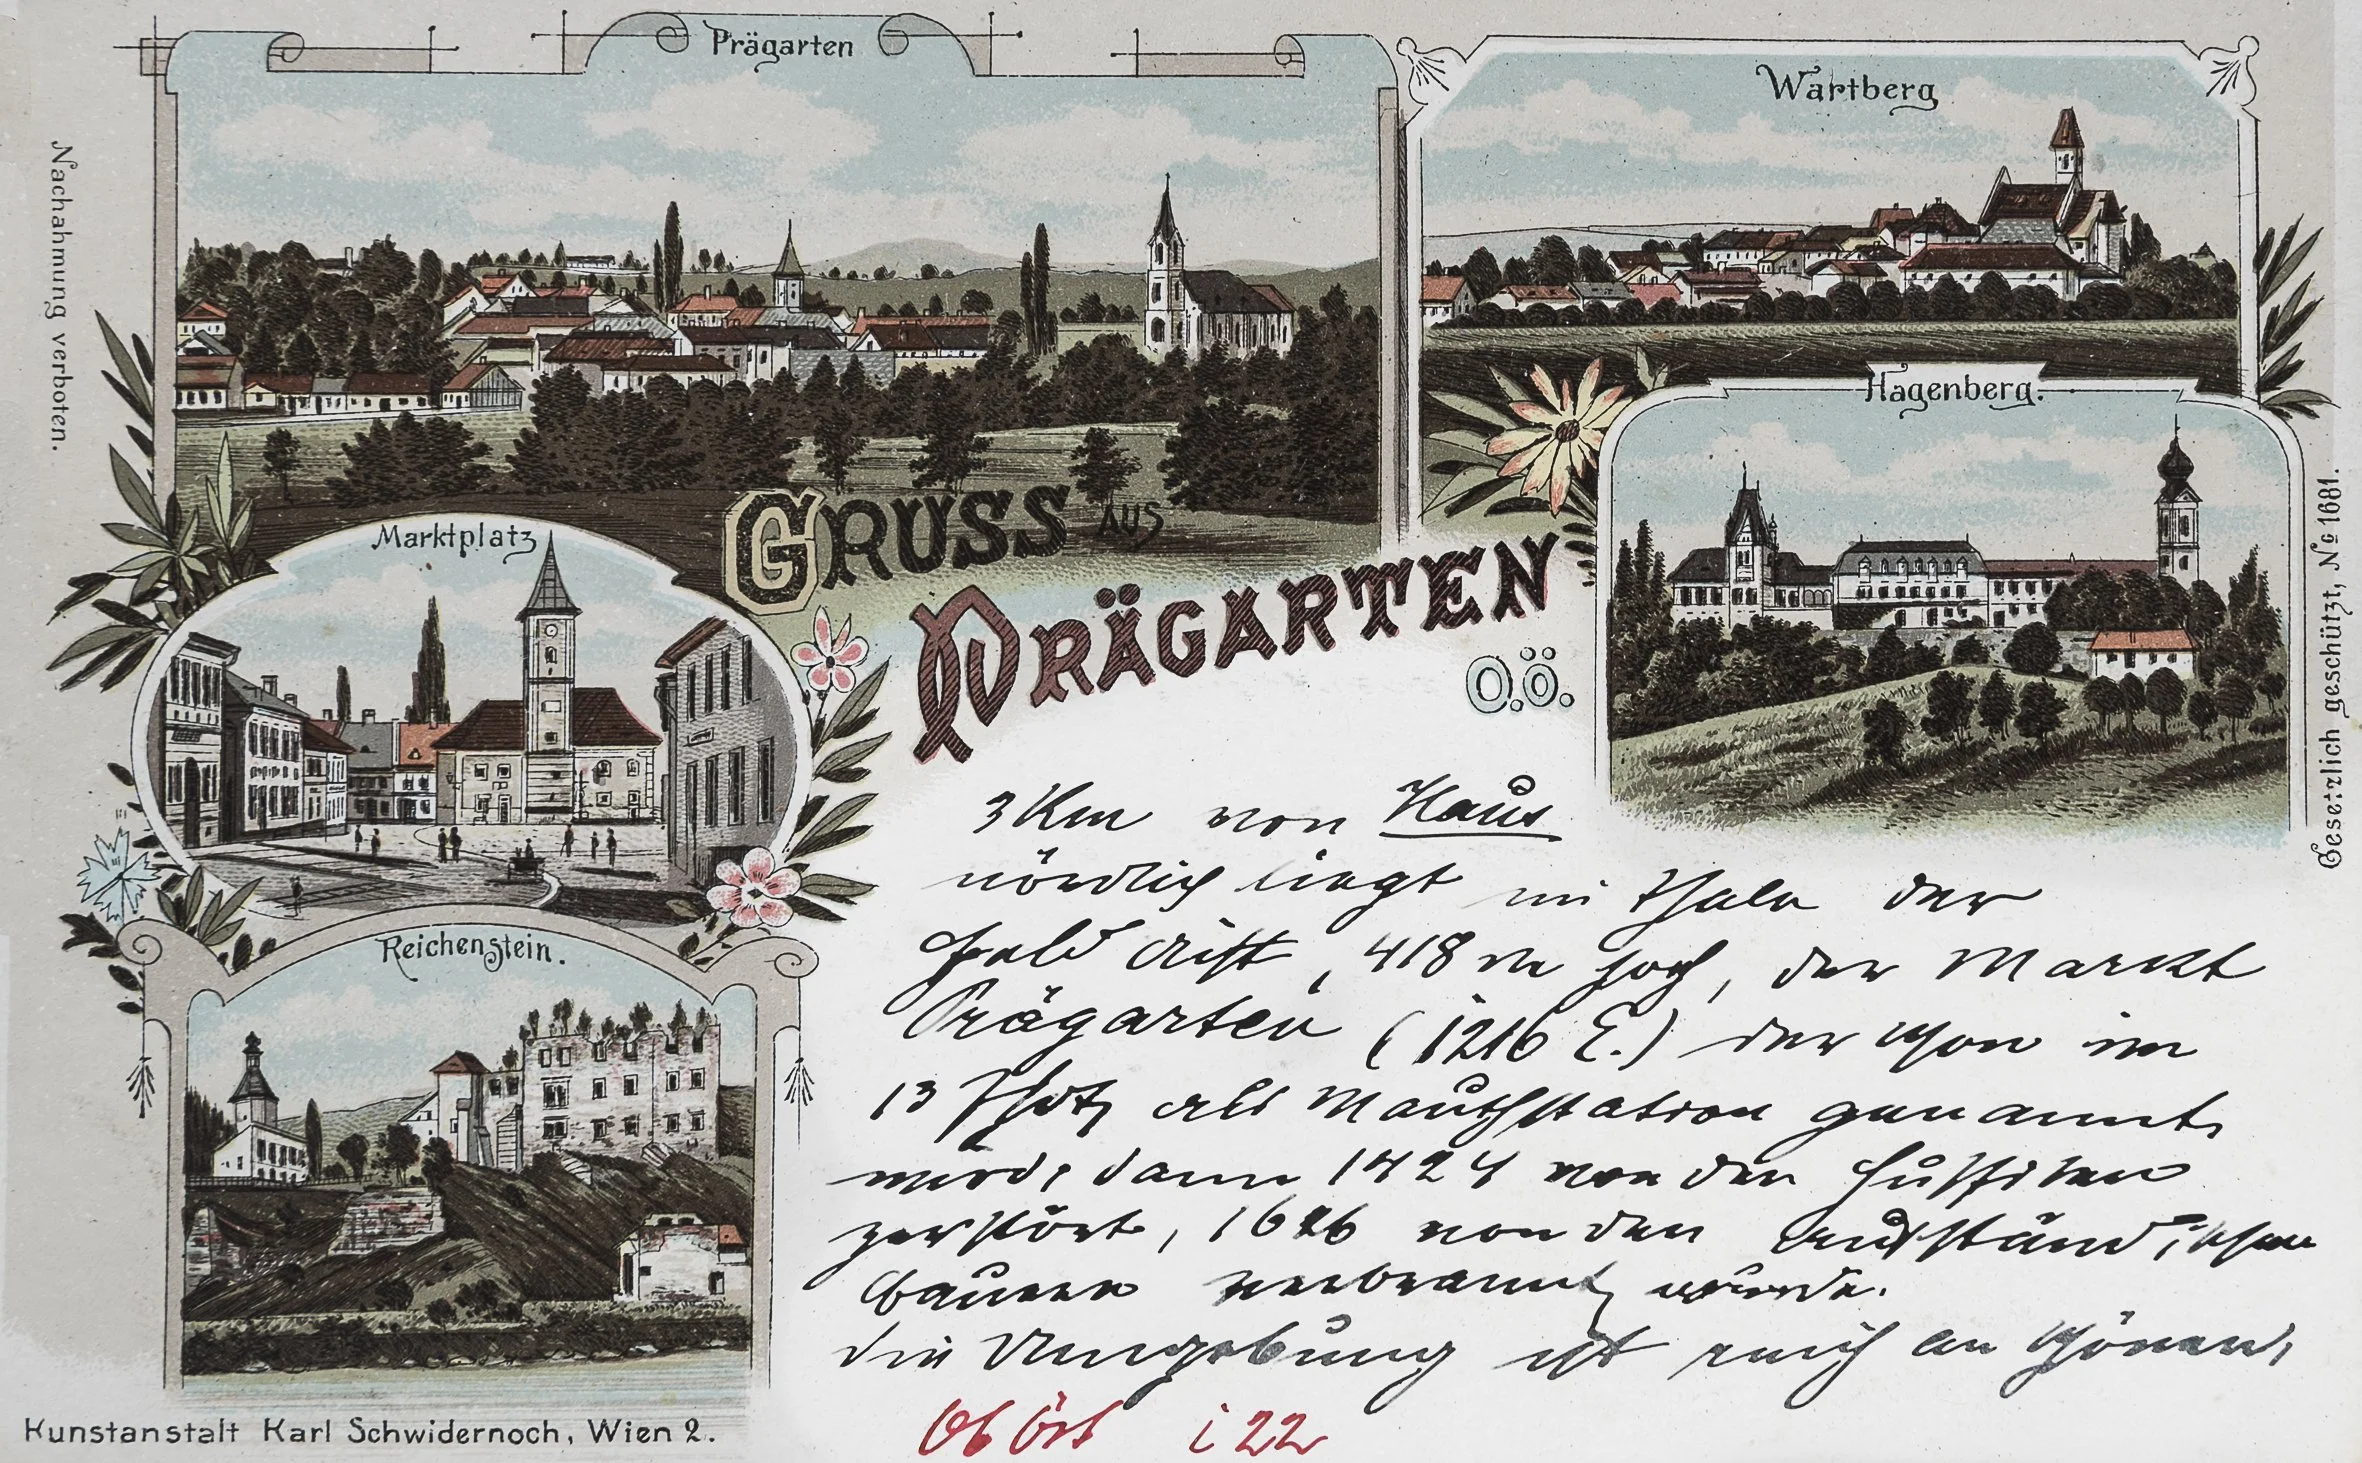 Prägarten
Wartberg
Hagenberg.
Marktplatz
Reichenstein.
GRUSS AUS
PRÄGARTEN
O.Ö.
Nachahmung verboten.
Gesetzlich geschützt, No 1681.
3 Km von Haus
nördlich liegt im Thale der
Feld Aist, 418 m hoch, der Markt
Prägarten (1216 E.) der schon im
13 Jhdt, als Mauthstation genannt,
wird, dann 1424 von den Hussiten
zerstört, 1626 von den aufständischen
Bauern verbrannt wurde.
die Umgebung ist reich an schönen,
Ob Öst i 22
Kunstanstalt Karl Schwidernoch, Wien 2.